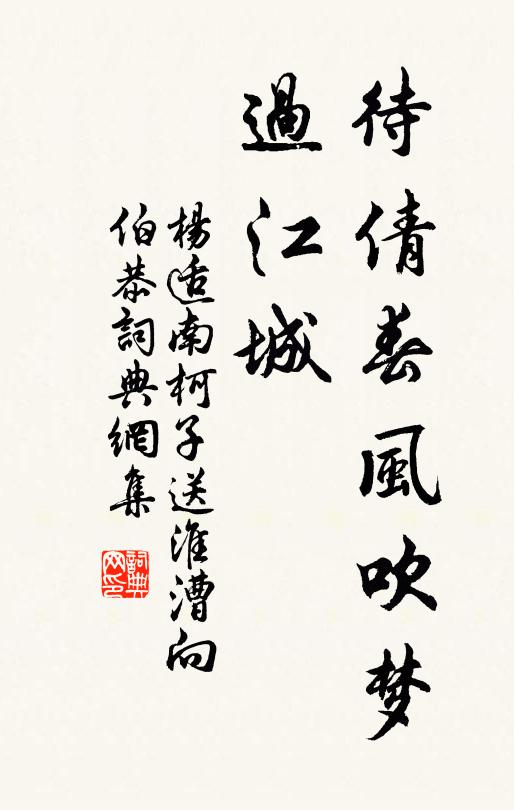 待倩春風吹梦
過江城
楊适南柯子送淮漕向
伯恭詞典網集
詞典网印